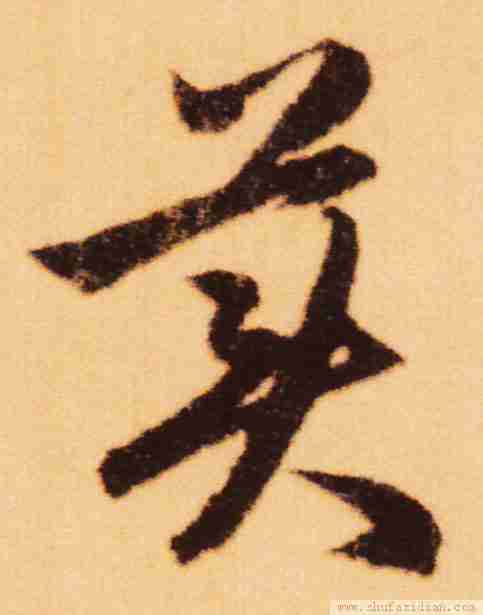 英
www.shufazidian.com